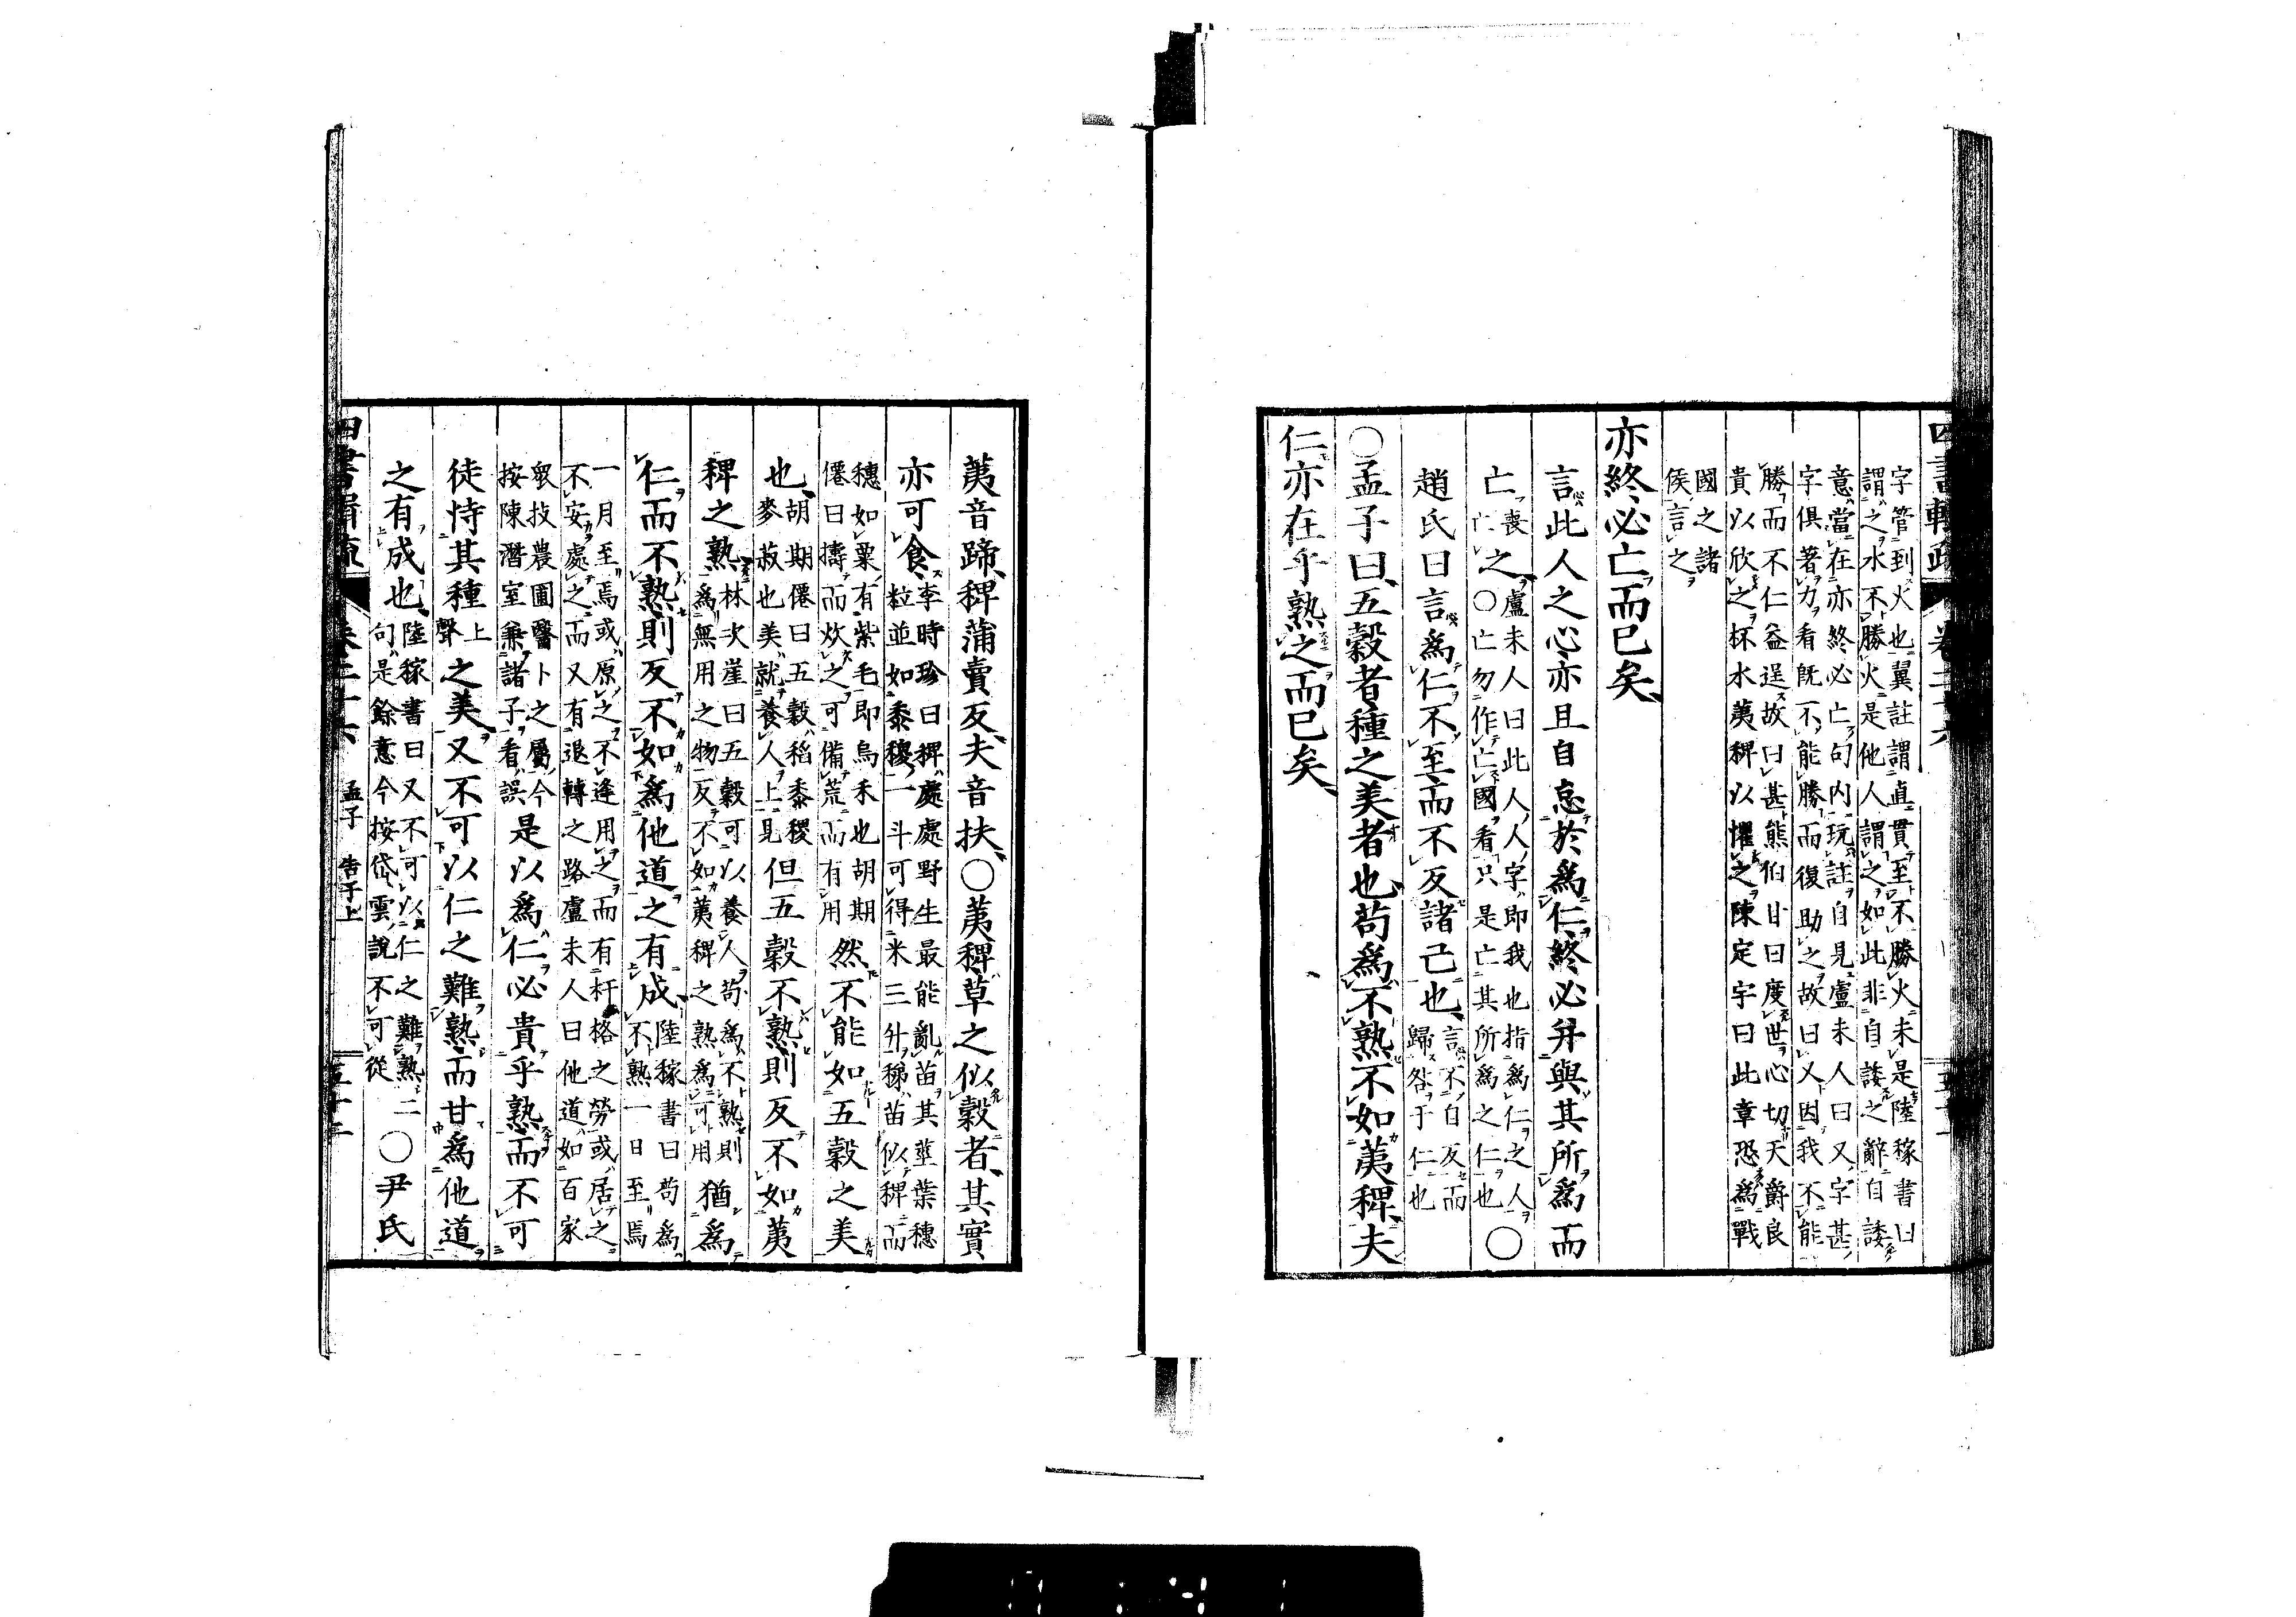 字管到火也翼註謂直貫至不勝火未是陸稼書曰
謂之水不勝火是他人謂之如此非自諉之辭自諉
意當在亦終必亡句内玩註自見盧未人曰又字甚
字俱著力看既不能勝而復助之故曰又因我不能
勝而不仁益逞故曰甚熊伯甘曰度世心切天爵良
貴以欣之杯水荑稗以懼之陳定宇曰此章恐爲戰
國之諸
侯言之
亦終必亡而已矣
言此人之心亦且自怠於爲仁終必并與其所爲而
亡
喪
亡
之
盧未人曰此人人字即我也指爲仁之人
〇亡勿作亡國看只是亡其所爲之仁也
〇
趙氏曰言爲仁不至而不反諸己也
言不自反而
歸咎于仁也
〇孟子曰五穀者種之美者也苟爲不熟不如荑稗夫
仁亦在乎熟之而已矣
荑音蹄稗蒲賣反夫音扶〇荑稗草之似穀者其實
亦可食
李時珍曰稗處處野生最能亂苗其莖葉穗
粒並如黍稷一斗可得米三升稊苗似稗而
穗如粟有紫毛即烏禾也胡期
僊曰擣而炊之可備荒而有用
然不能如五穀之美
也
胡期僊曰五穀稻黍稷
麥菽也美就養人上見
但五穀不熟則反不如荑
稗之熟
林次崖曰五穀可以養人苟爲不熟則
爲無用之物反不如荑稗之熟爲可用
猶爲
仁而不熟則反不如爲他道之有成
陸稼書曰苟爲
不熟一日至焉
一月至焉或原之不逢用之而有杆格之勞或居之
不安處之而又有退轉之路盧未人曰他道如百家
眾技農圃醫卜之屬今
按陳潛室兼諸子看誤
是以爲仁必貴乎熟而不可
徒恃其種
上
聲
之美又不可以仁之難熟而甘爲他道
之有成也
陸稼書曰又不可以仁之難熟二
句是餘意今按岱雲說不可從
〇尹氏
四書輯疏
卷二十六
孟子 告子上